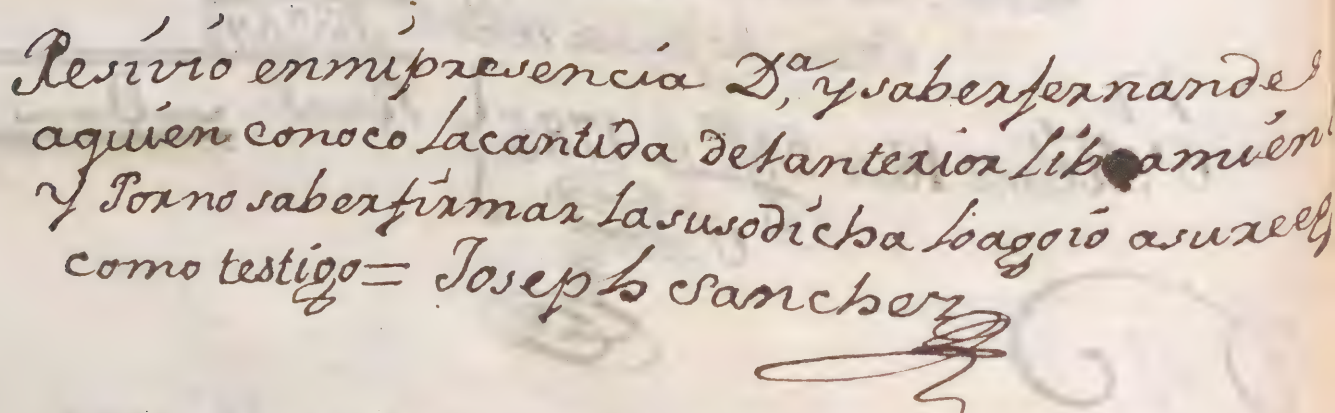 Resivio enmipresencia D.ª ysaber fernande
aquien conoco lacantida delanterior libramien
y Porno saber firmar lasusodicha lo ago io asu
como testigo = Joseph Sanchez